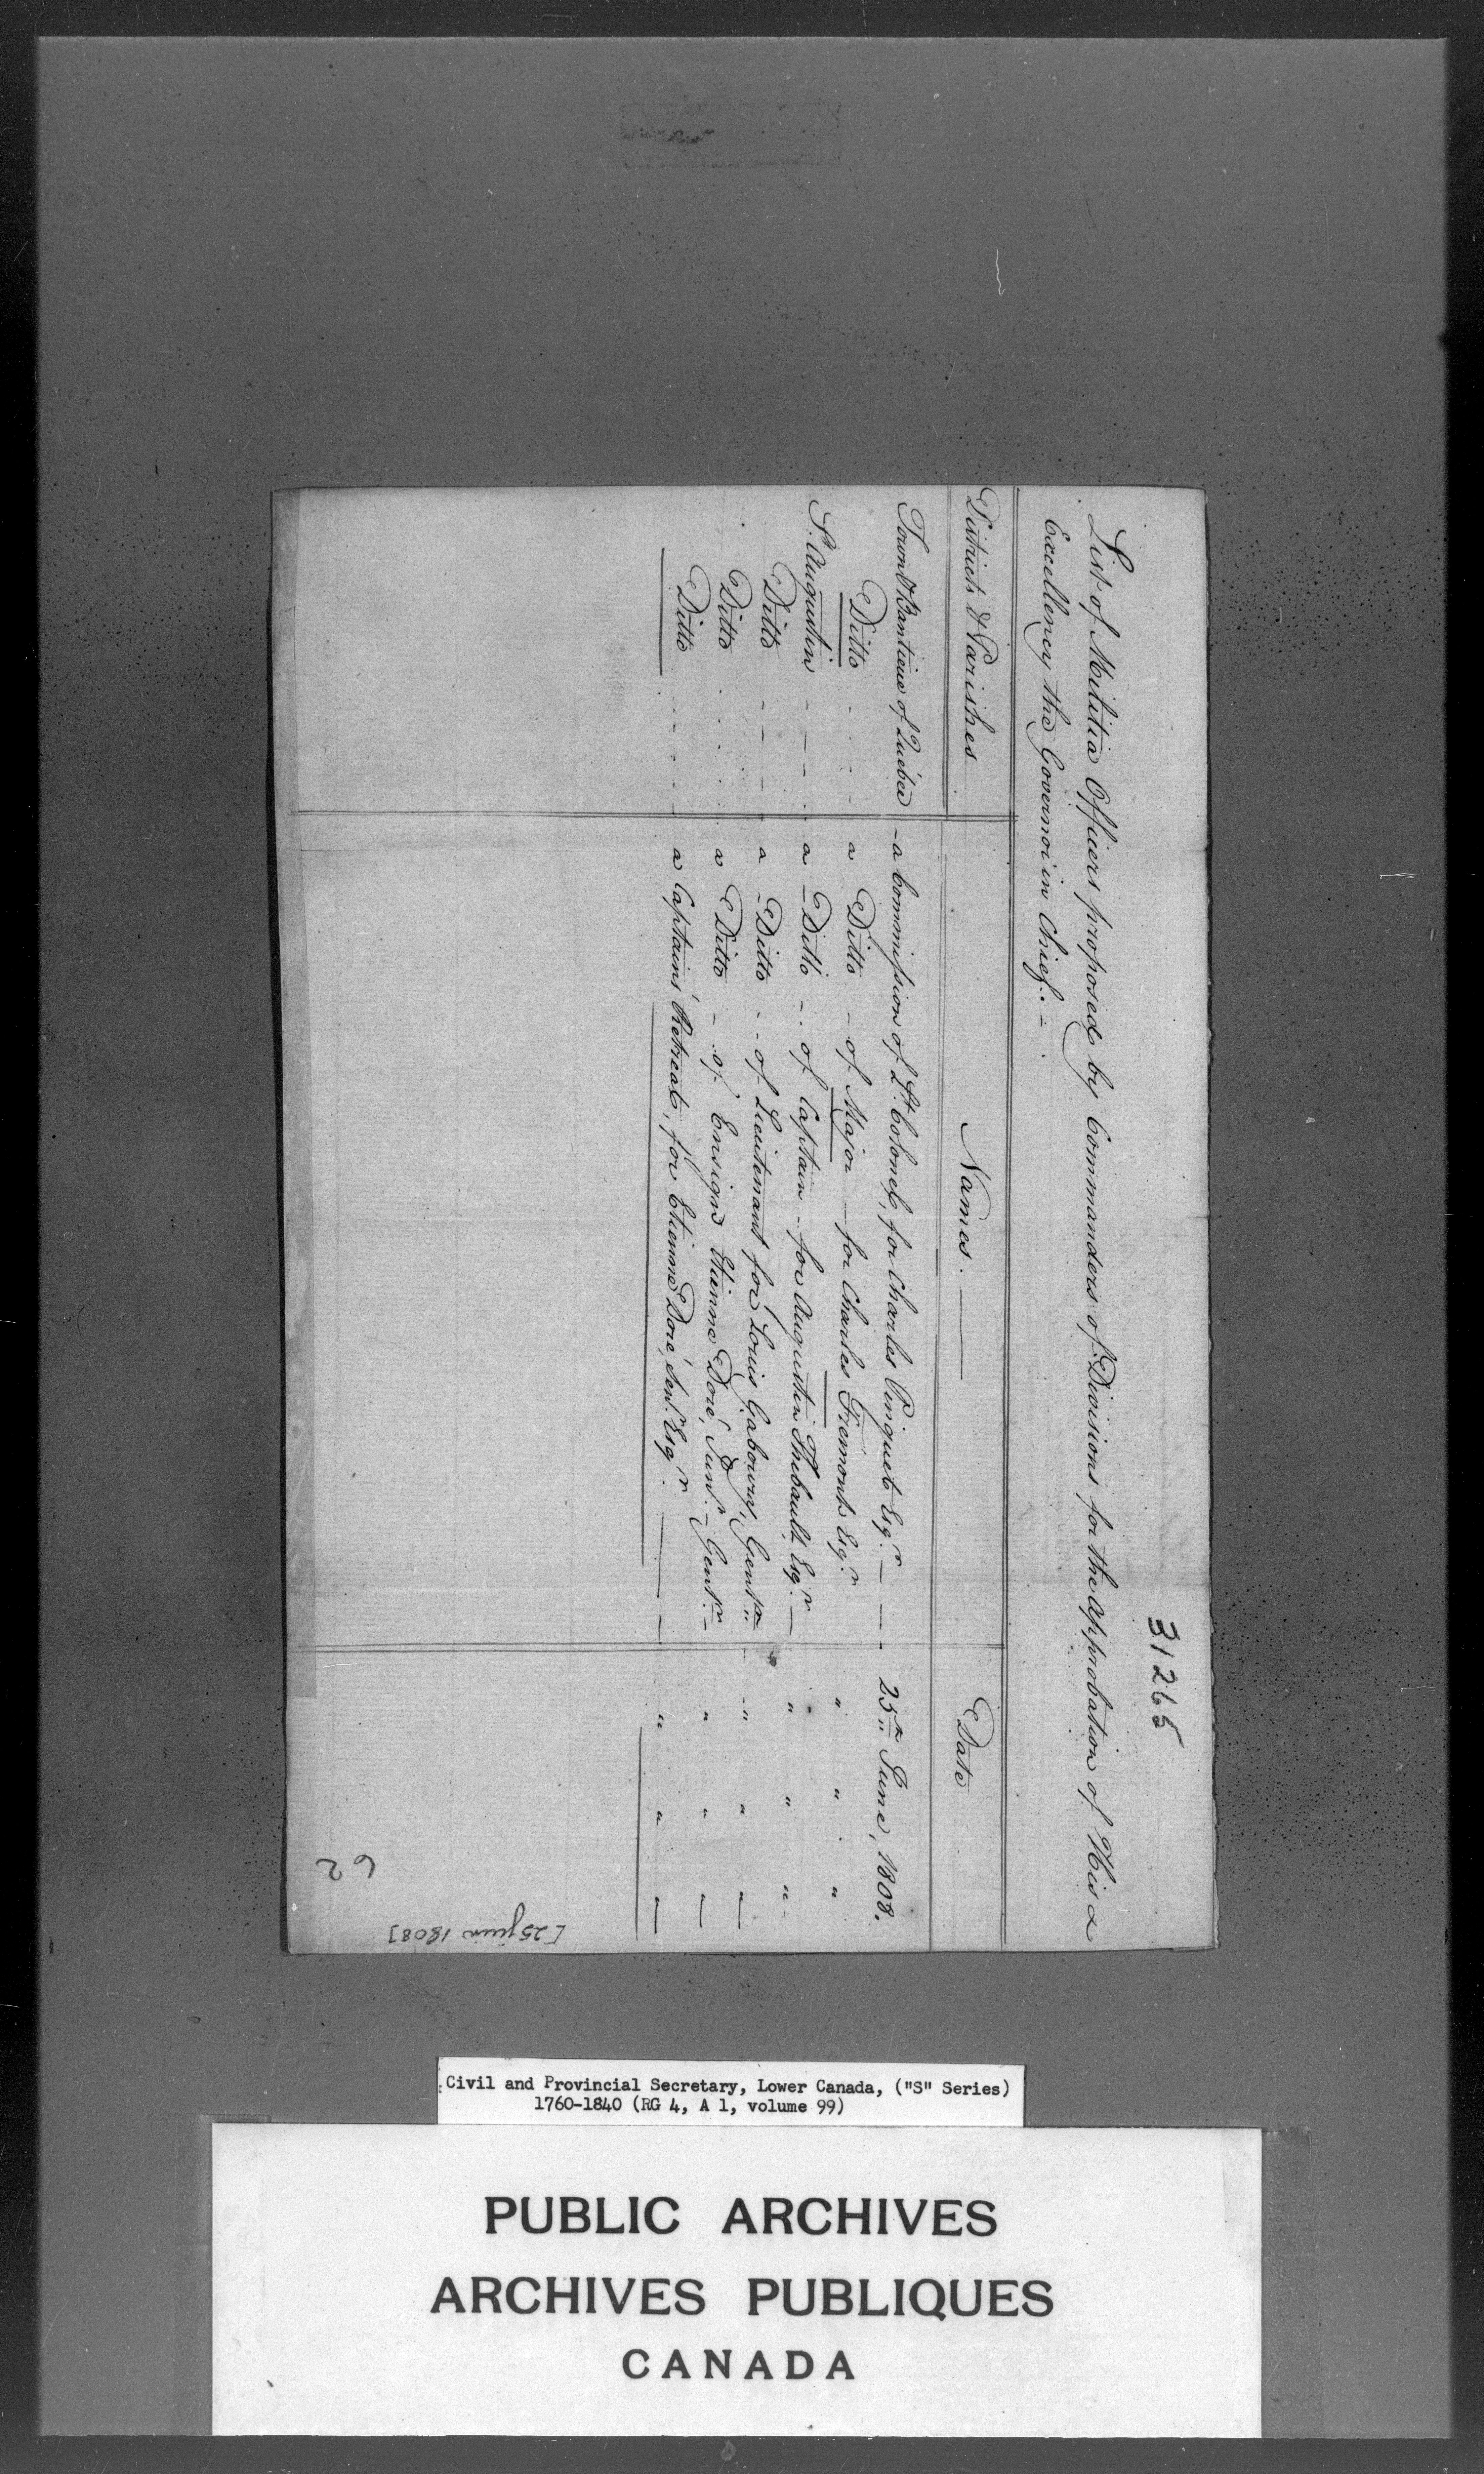 31265
List of Militia Officers proposed by Commanders of Divisions for the approbation of His
Excellency the Governor in Chief. -
Districts & Parishes Names. Date
Town & Banlieue of Quebec - a Commission of Lt. Colonel, for Charles Pinguet Esqr. - 25th June, 1808.
Ditto a Ditto - of Major - for Charles Fremont Esqr. " " "
St. Augustin a Ditto - of Captain - for Augustin Thibault Esqr. - " " "
Ditto a Ditto - of Lieutenant for Louis Gaboury, Gentn. " " "
Ditto a Ditto - of Ensign Etienne Doré, Junr. - Gentn. - " " "
Ditto a Captains' Retreat, for Etienne Doré, Senr. Esqr. " " "
[25 juin 1808]
62
Civil and Provincial Secretary, Lower Canada, ("S" Series)
1760-1840 (RG 4, A 1, volume 99)
PUBLIC ARCHIVES
ARCHIVES PUBLIQUES
CANADA